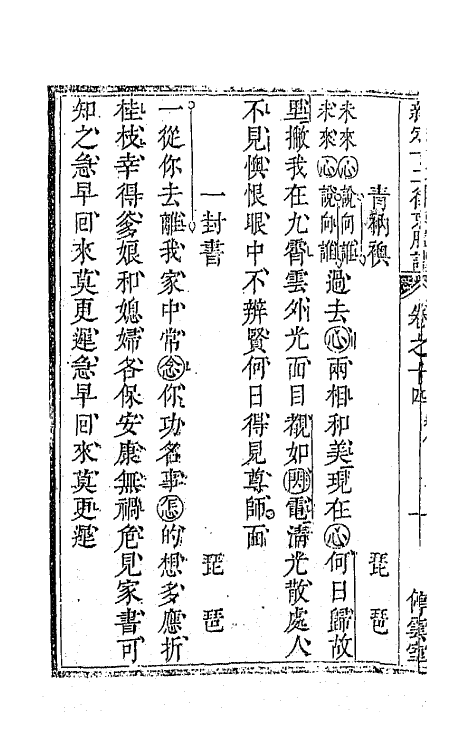 新定十二律京腔譜 卷之十四 一 停雲室
青衲襖 琵琶
未來心說向誰
未來心說向誰
過去心兩相和美現在心何日歸故
里撇我在九霄雲外光面目覩如閃電清光散處人
不見懊恨眼中不辨賢何日得見尊師面
一封書 琵琶
一從你去離我家中常念你功名事怎的想多應折
桂枝幸得爹娘和媳婦各保安康無禍危見家書可
知之急早回來莫更遲急早回來莫更遲